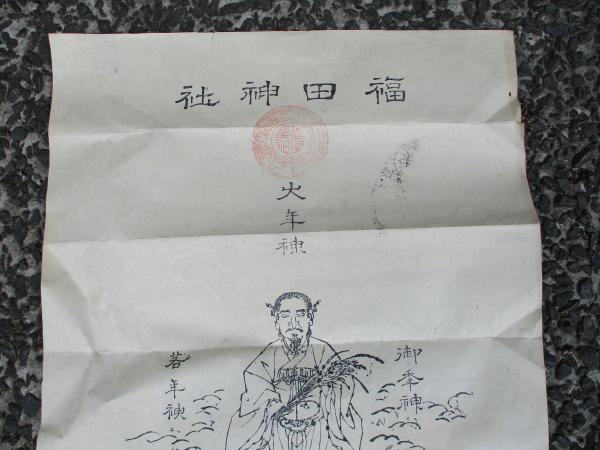 福田神社
大年神
御年神
若年神